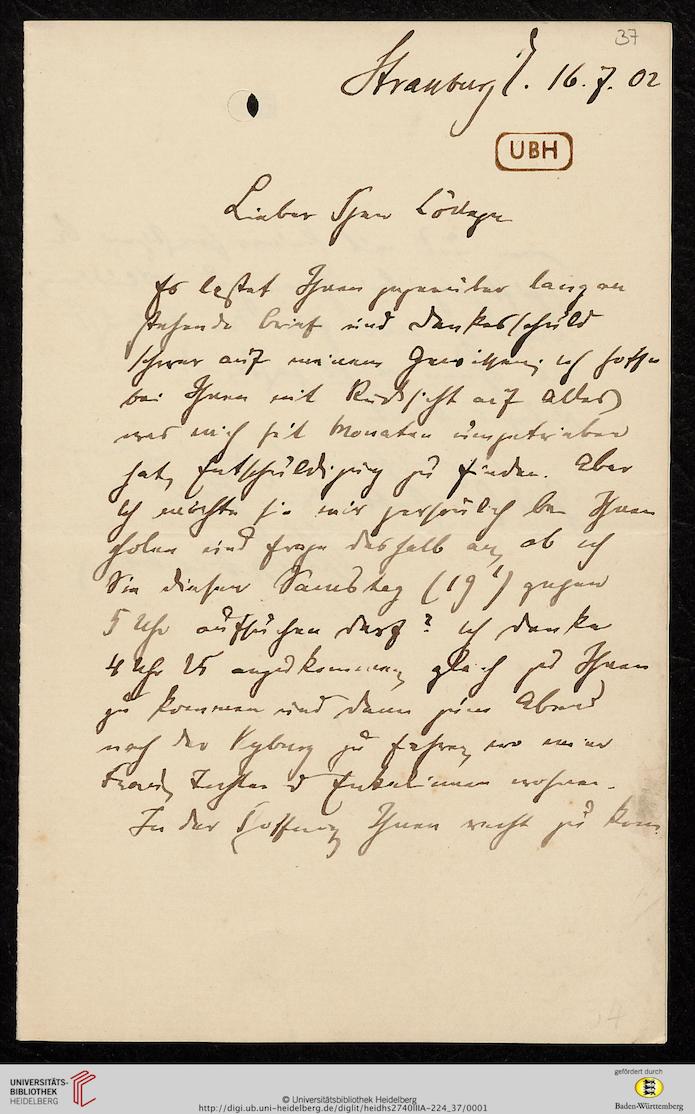 37
Strassburg E. 16. 7. 02
UBH
Lieber Herr
Es lastet Ihnen gegenüber lang an
stehende Brief und Dankesschuld
schwer auf meinem Gewissen; ich hoffe
bei Ihnen mit Rücksicht auf alles,
was mich seit Monaten umgetrieben
hat, Entschuldigung zu finden. Aber
ich möchte sie mir persönlich bei Ihnen
holen und frage deshalb an, ob ich
Sie diesen Samstag (19t) gegen
5 Uhr aufsuchen darf? Ich denke
4 Uhr 25 anzukommen, gleich zu Ihnen
zu kommen und dann zum Abend
nach der Kyburg zu fahren, wo meine
Frau, Tochter u Enkelinnen wohnen.
In der Hoffnung Ihnen recht zu kom
UNIVERSITÄTS-
BIBLIOTHEK
HEIDELBERG
© Universitätsbibliothek Heidelberg
http://digi.ub.uni-heidelberg.de/diglit/heidhs2740IIIA-224_37/0001
gefördert durch
Baden-Württemberg